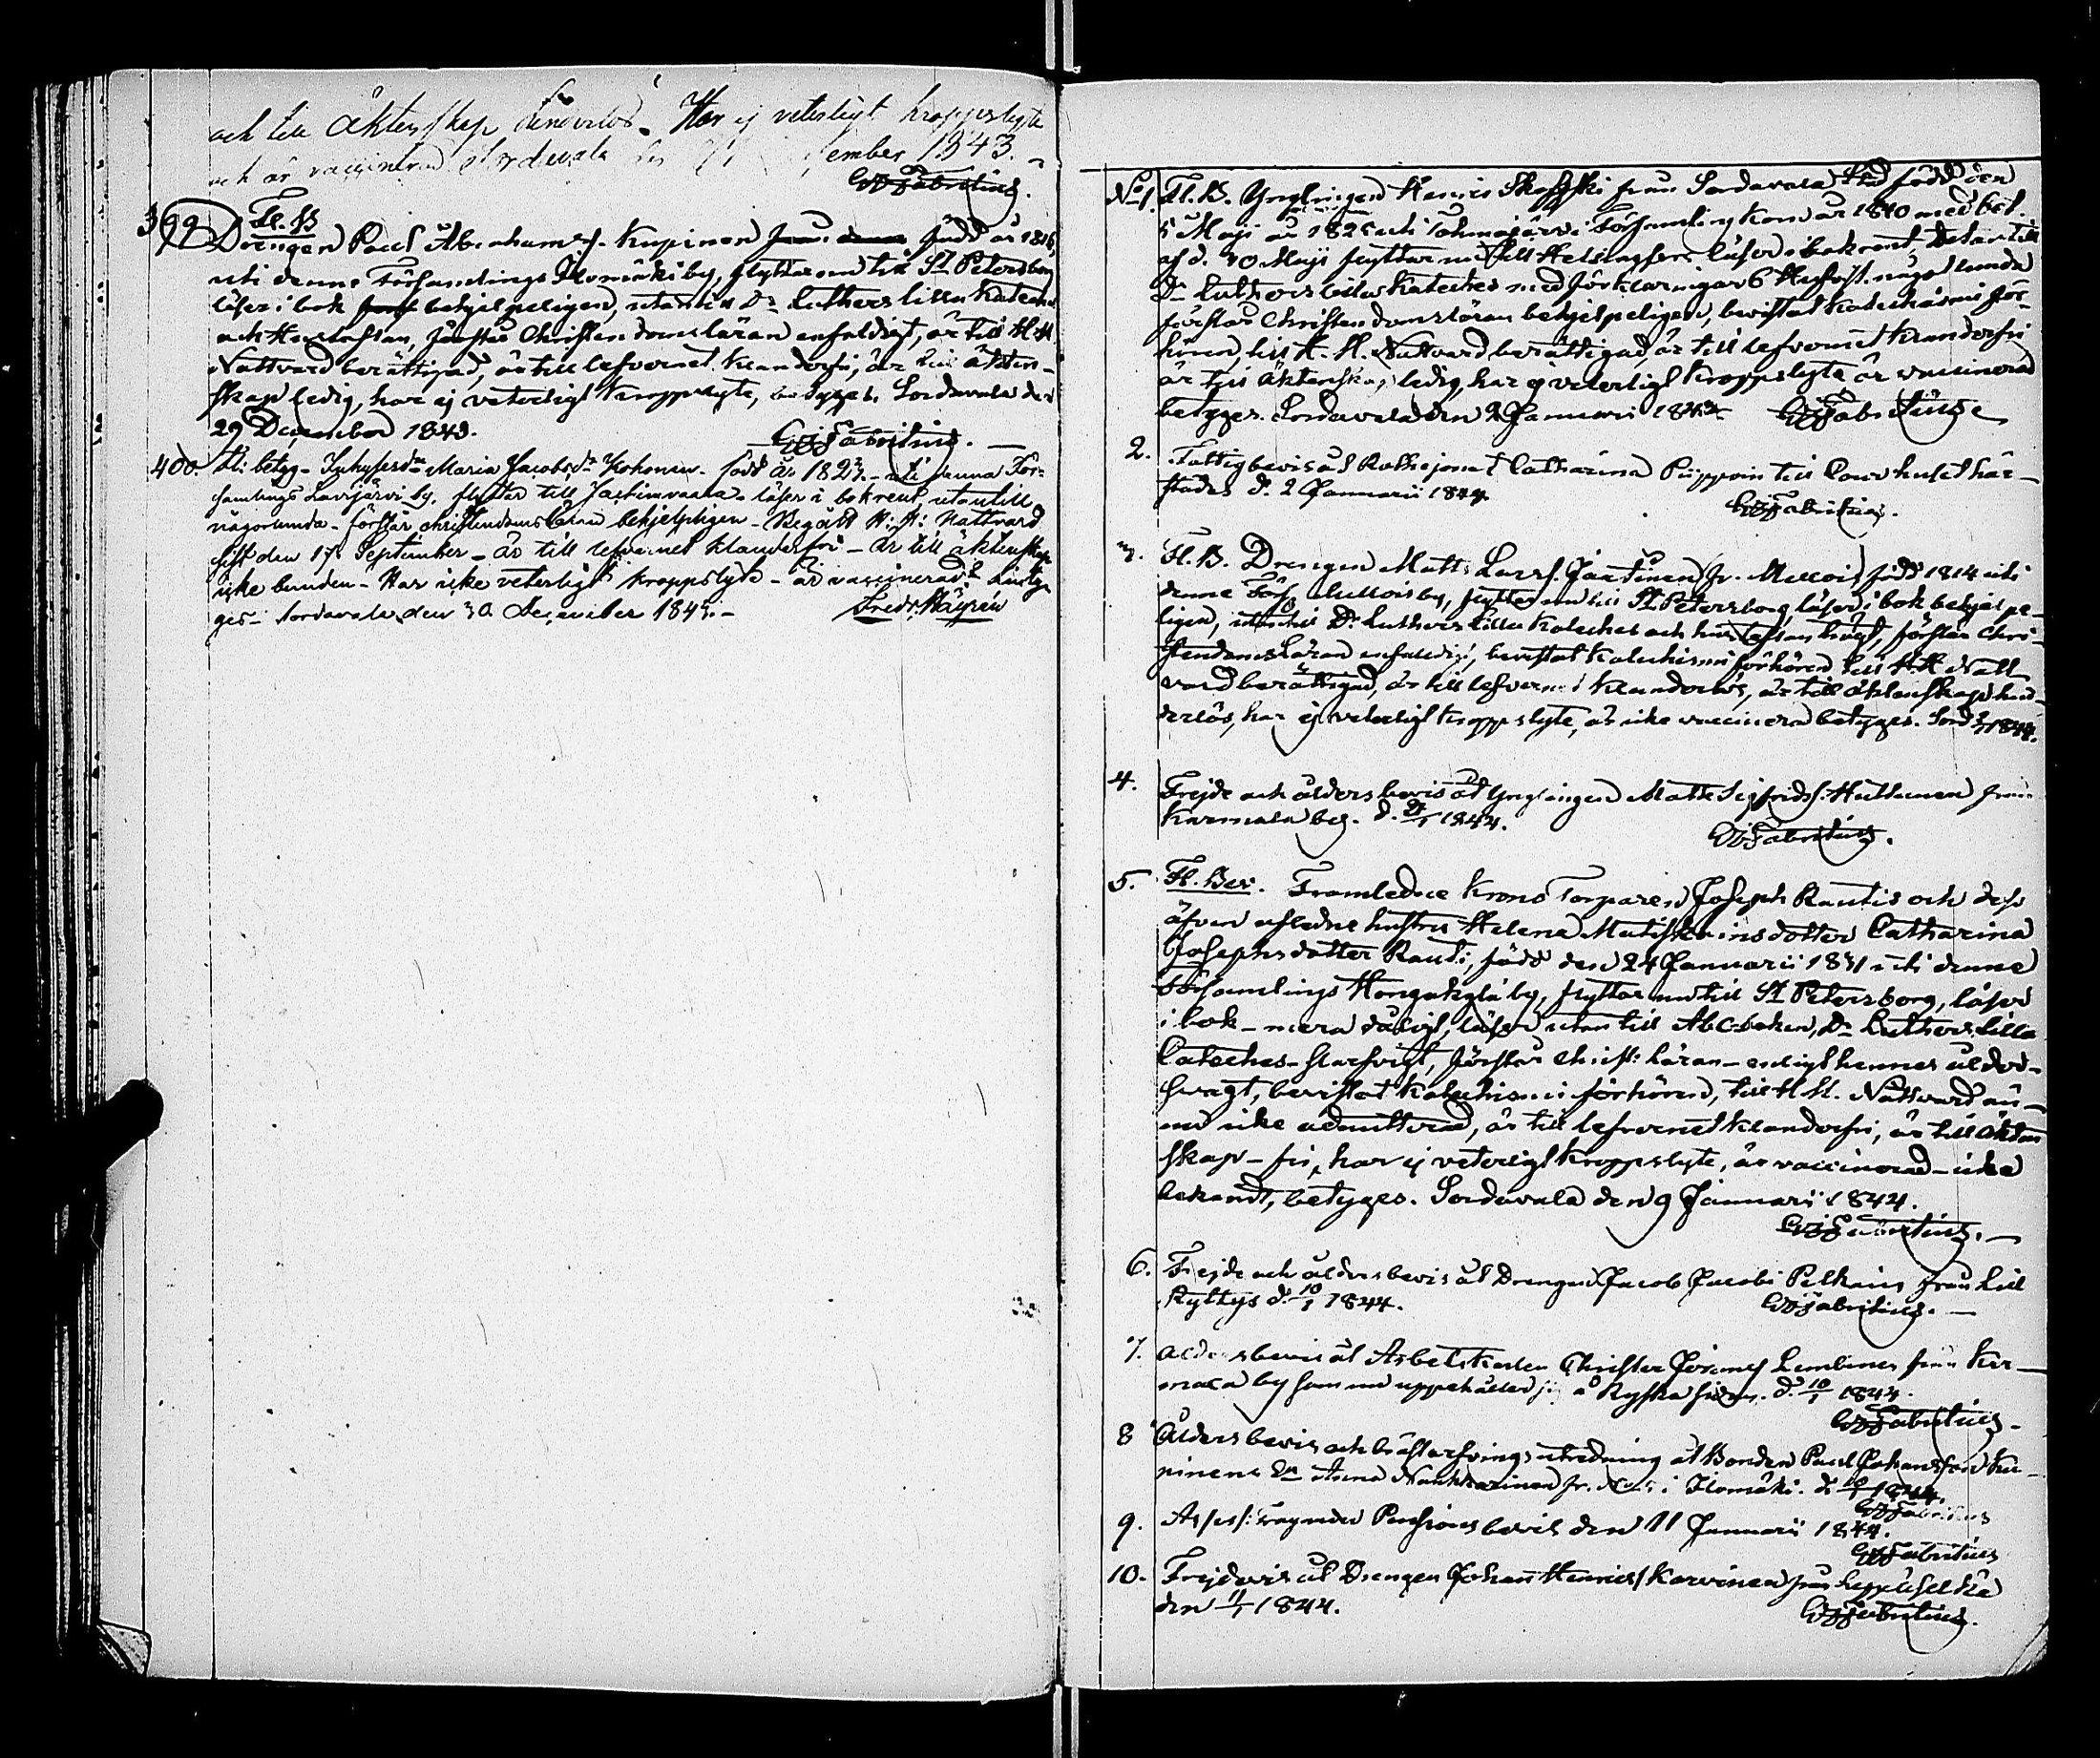 och till Äktenskap hinderlös. Har ej veterligt kroppslyte
och är vaccinerad Sordavala den ember 1843.
GJFabritius.
399 Fl. B
Drengen Paul Abrahams. Kupinen född år 1816,
uti denne Församlings Ilomäki by, flyttar nu till St Petersborg
läser i bok behjelpeligen, utantill Dr Luthers lilla Kateches
och Hustaflan, förstår Christendomsläran enfaldigt, är till H. H.
Nattvard berättigad, är till lefvernet klanderfri, är till äkten-
skap ledig, har ej veterligt kroppslyte, betyges. Sordavala den
29 December 1843.
GJFabritius.
400. Fl: betyg - Maria Jacobsdr Kohonen - född år 1823 - uti denna För-
samlings by, flytter till Jachimvaara - läser i bok rent utantill
någorlunda - förstår christendoms läran behjelpligen - Begått H: H: Nattvard
sist den 17 September - är till lefvernet klanderfri - är till äktenskap
icke bunden - Har icke veterligt kroppslyte - är vaccinerad,
ges - Sordavala den 30 December 1843. - Fredr. Häyrén
No 1. Fl. B. Ynglingen Henric Skoffski från Sordavala Stad född den
5 Maji år 1825 uti Tohmajärvi Församling kom år 1840 med bet.
af d. 30 Maji flyttar nu till Helsingfors läser i bok rent utantill
Dr Luthers lilla Kateches med förklaringar någorlunda
förstår Christendomsläran behjelpeligen, bevistat Katechismi för-
hören, till H. H. Nattvard berättigad, är till lefvernet klanderfri
är till Äktenskap ledig, har ej veterligt kroppslyte är vaccinerad
betyges. Sordavala den 2 Januari 1844. GJFabritius
2. Fattigbevis åt Catharina Piippoin till Curhuset här-
städes d. 2 Januarii 1844.
GJFabritius.
3. Fl. B. Drengen Matts Larss. Jaatinen fr. Mellois född 1814 uti
denne Förs. Mellois by, flyttar nu till St Petersborg, läser i bok behjelpe-
ligen, utantill Dr Luthers lilla Kateches och hustaflan förstår Chri-
stendomsläran enfaldigt, bevistat Katechismi förhören till H. H. Natt
vard berättigad, är till lefvernet klanderlös, är till äktenskap hin-
derlös, har ej veterligt kroppslyte, är icke vaccinerad betyges. Sord 1844.
4. Frejde och ålders bevis åt Ynglingen Matts Sigfrids. Huttunen från
Karmala by. d. 1844.
GJFabritius.
5. Fl. Bev. Framledne Krono Torparen Joseph Rautis och dess
äfven afledne hustru Helena Matiskainsdotter Catharina
Josephsdotter Rauti, född den 24 Januarii 1831 uti denne
Församlings by, flyttar nu till St Petersborg, läser
i bok - mera dåligt, läser utan till Abc-boken, Dr Luthers Lilla
Cateches - förstår christ: läran - enligt hennes ålder -
svagt, bevistat Katechismi förhören, till H. H. Nattvard än-
nu icke admitterad, är till lefvernet klanderfri, är till äkten
skap - fri, har ej veterligt kroppslyte, är vaccinerad - icke
bekandt, betyges. Sordavala den 9 Januarii 1844.
GJFabritius.
6. Frejde och ålders bevis åt Drengen Jacob Jacobs Pelkain från Lill
Kyttys d. 10/1 1844. GJFabritius.
7. Ålders bevis åt Arbetskarlen Christer från Kar-
mala by som nu uppehåller sig å Ryska sidan. d. 10/1 1844.
GJFabritius.
8 Ålders bevis och utredning åt Bonden Paul Johansson Ku-
Anna i Ilomäki. d. 1844.
GJFabritius
9. Pensions bevis den 11 Januarii 1844.
GJFabritius
10. Frejdevis åt Drengen Johan Henrics. Karvinen från
den 11/1 1844. GJFabritius.